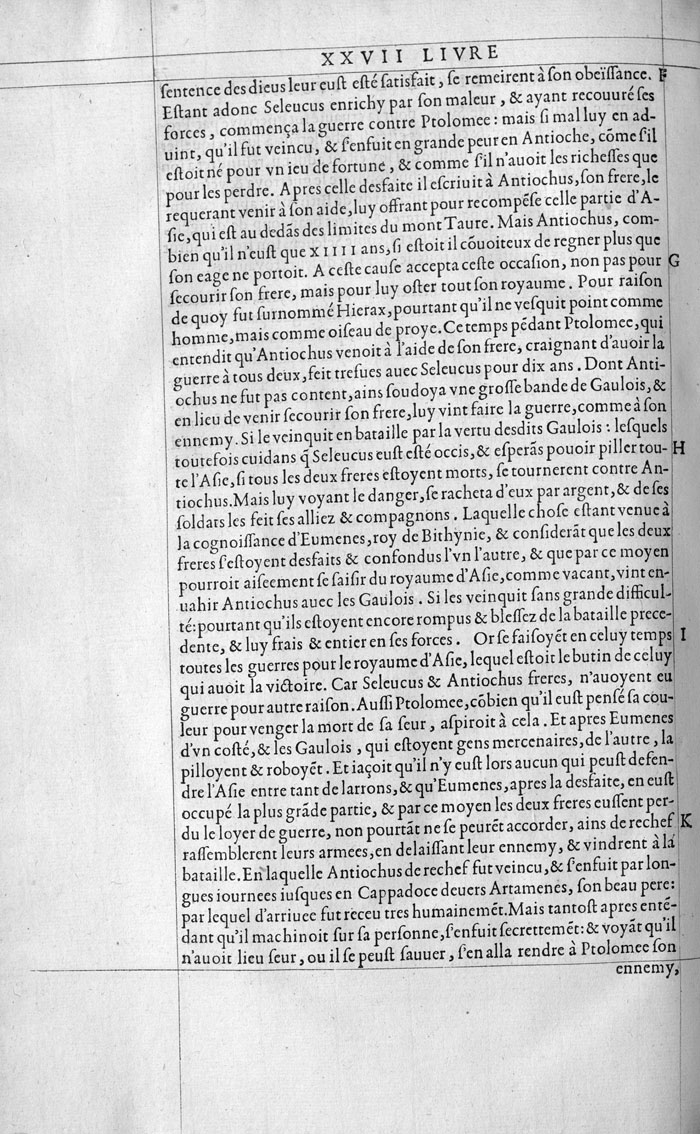 XXVII LIVRE
ſentence des dieus leur euſt eſté ſatisfait, ſe remeirent à ſon obeïſſance. F
Eſtant adonc Seleucus enrichy par ſon maleur, & ayant recouuré ſes
forces, commença la guerre contre Ptolomee: mais ſi mal luy en ad-
uint, qu'il fut veincu, & ſ'enfuit en grande peur en Antioche, cõme ſ'il
eſtoit né pour vn ieu de fortune, & comme ſ'il n'auoit les richeſſes que
pour les perdre. Apres celle desfaite il eſcriuit à Antiochus, ſon frere, le
requerant venir à ſon aide, luy offrant pour recompẽſe celle partie d'A-
ſie, qui eſt au dedãs des limites du mont Taure. Mais Antiochus, com-
bien qu'il n'euſt que XIIII ans, ſi eſtoit il cõuoiteux de regner plus que
ſon eage ne portoit. A ceſte cauſe accepta ceſte occaſion, non pas pour G
ſecourir ſon frere, mais pour luy oſter tout ſon royaume. Pour raiſon
de quoy fut ſurnommé Hierax, pourtant qu'il ne veſquit point comme
homme, mais comme oiſeau de proye. Ce temps pẽdant Ptolomee, qui
entendit qu'Antiochus venoit à l'aide de ſon frere, craignant d'auoir la
guerre à tous deux, feit trefues auec Seleucus pour dix ans. Dont Anti-
ochus ne fut pas content, ains ſoudoya vne groſſe bande de Gaulois, &
en lieu de venir ſecourir ſon frere, luy vint faire la guerre, comme à ſon
ennemy. Si le veinquit en bataille par la vertu desdits Gaulois: leſquels
toutefois cuidans q̃ Seleucus euſt eſté occis, & eſperãs pouoir piller tou- H
te l'Aſie, ſi tous les deux freres eſtoyent morts, ſe tournerent contre An-
tiochus. Mais luy voyant le danger, ſe racheta d'eux par argent, & de ſes
ſoldats les feit ſes alliez & compagnons. Laquelle choſe eſtant venue à
la cognoiſſance d'Eumenes, roy de Bithynie, & conſiderãt que les deux
freres ſ'eſtoyent desfaits & confondus l'vn l'autre, & que par ce moyen
pourroit aiſeement ſe ſaiſir du royaume d'Aſie, comme vacant, vint en-
uahir Antiochus auec les Gaulois. Si les veinquit ſans grande difficul-
té: pourtant qu'ils eſtoyent encore rompus & bleſſez de la bataille prece-
dente, & luy frais & entier en ſes forces. Or ſe faiſoyẽt en celuy temps I
toutes les guerres pour le royaume d'Aſie, lequel eſtoit le butin de celuy
qui auoit la victoire. Car Seleucus & Antiochus freres, n'auoyent eu
guerre pour autre raiſon. Auſſi Ptolomee, cõbien qu'il euſt penſé ſa cou-
leur pour venger la mort de ſa ſeur, aſpiroit à cela. Et apres Eumenes
d'vn coſté, & les Gaulois, qui eſtoyent gens mercenaires, de l'autre, la
pilloyent & roboyẽt. Et iaçoit qu'il n'y euſt lors aucun qui peuſt defen-
dre l'Aſie entre tant de larrons, & qu'Eumenes, apres la desfaite, en euſt
occupé la plus grãde partie, & par ce moyen les deux freres euſſent per-
du le loyer de guerre, non pourtãt ne ſe peurẽt accorder, ains de rechef K
raſſemblerent leurs armees, en delaiſſant leur ennemy, & vindrent à la
bataille. En laquelle Antiochus de rechef fut veincu, & ſ'enfuit par lon-
gues iournees iuſques en Cappadoce deuers Artamenes, ſon beau pere:
par lequel d'arriuee fut receu tres humainemẽt. Mais tantoſt apres entẽ-
dant qu'il machinoit ſur ſa perſonne, ſ'enfuit ſecrettemẽt: & voyãt qu'il
n'auoit lieu ſeur, ou il ſe peuſt ſauuer, ſ'en alla rendre à Ptolomee ſon
ennemy,